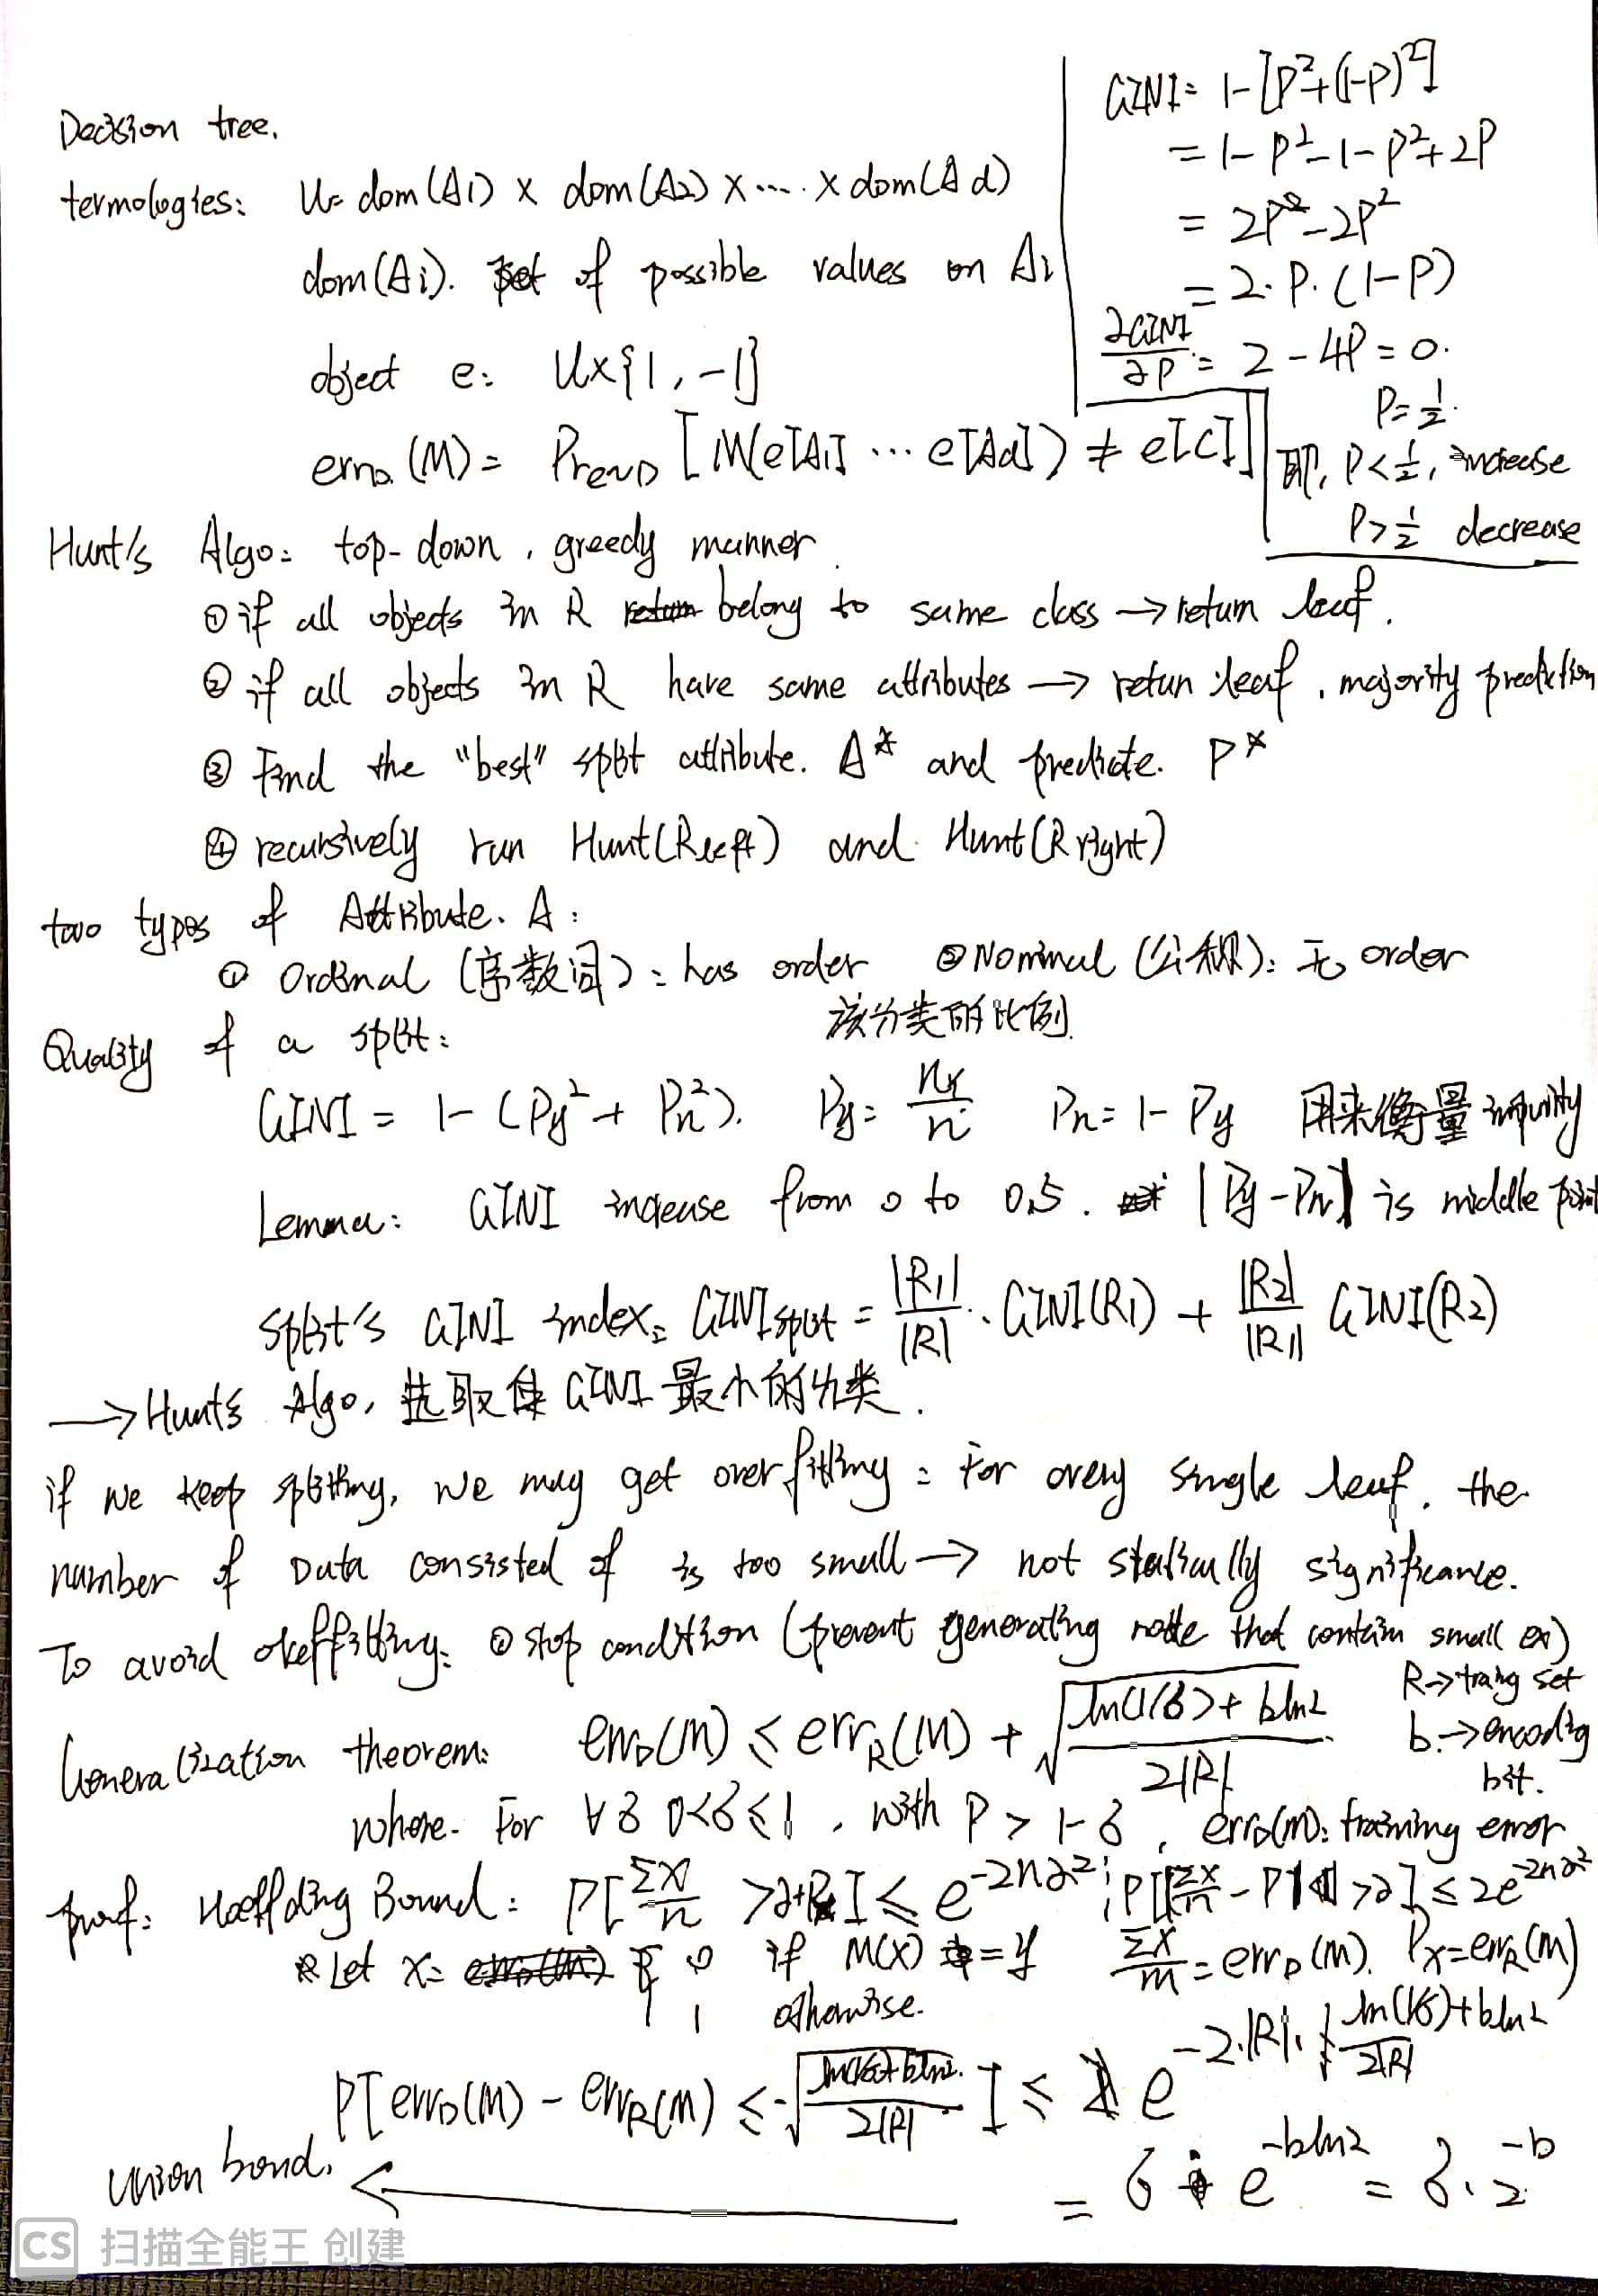 Decision tree.
termologies: U= dom(A1) × dom(A2) × .... × dom(Ad)
dom(Ai). set of possible values on Ai
object e: U×{1, -1}
err_D (M) = Pr_e~D [M(e[A1] ... e[Ad]) ≠ e[C]]
GINI= 1-[P²+(1-P)²]
= 1-P²-1-P²+2P
= 2P-2P²
= 2·P·(1-P)
∂GINI/∂P = 2-4P = 0.
P= 1/2.
即, P<1/2, increase
P>1/2 decrease
Hunt's Algo: top-down, greedy manner.
① if all objects in R belong to same class → return leaf.
② if all objects in R have same attributes → retun leaf, majority prediction
③ Find the "best" split attribute. A* and predicte. P*
④ recursively run Hunt(Rleft) and Hunt(Rright)
two types of Attribute. A:
① Ordinal (序数词): has order ② Nominal (公称): 无 order
Quality of a split:
该分类的比例
GINI = 1-(Py²+Pn²). Py= ny/n Pn= 1-Py 用来衡量 impurity
Lemma: GINI increase from 0 to 0.5. |Py-Pn| is middle point
split's GINI index: GINIsplit = |R1|/|R| · GINI(R1) + |R2|/|R| GINI(R2)
→ Hunt's Algo, 选取使 GINI 最小的分类.
if we keep splitting, we may get overfitting: For every single leaf, the
number of Data consisted of is too small → not statically significance.
To avoid ① stop condition (prevent generating node that contain small e)
Generalization theorem: err_D(M) ≤ err_R(M) + √((ln(1/δ)+bln2)/(2|R|))
R→traing set
b.→encoding
bit.
where. For ∀δ 0<δ≤1, with P > 1-δ, err_D(M): training error
proof: Hoeffding Bound: P[ΣX/n > ∂+Px] ≤ e^(-2n∂²); P[|ΣX/n - P| > ∂] ≤ 2e^(-2n∂²)
Let X= { 0 if M(X) = y ΣX/m = err_D(M). Px=err_R(M)
1 otherwise.
P[err_D(M) - err_R(M) ≤ -√((ln(1/δ)+bln2)/(2|R|))] ≤ e^(-2·|R|·(ln(1/δ)+bln2)/(2|R|))
union bond. ← = δ · e^(-bln2) = δ·2^(-b)
CS 扫描全能王 创建